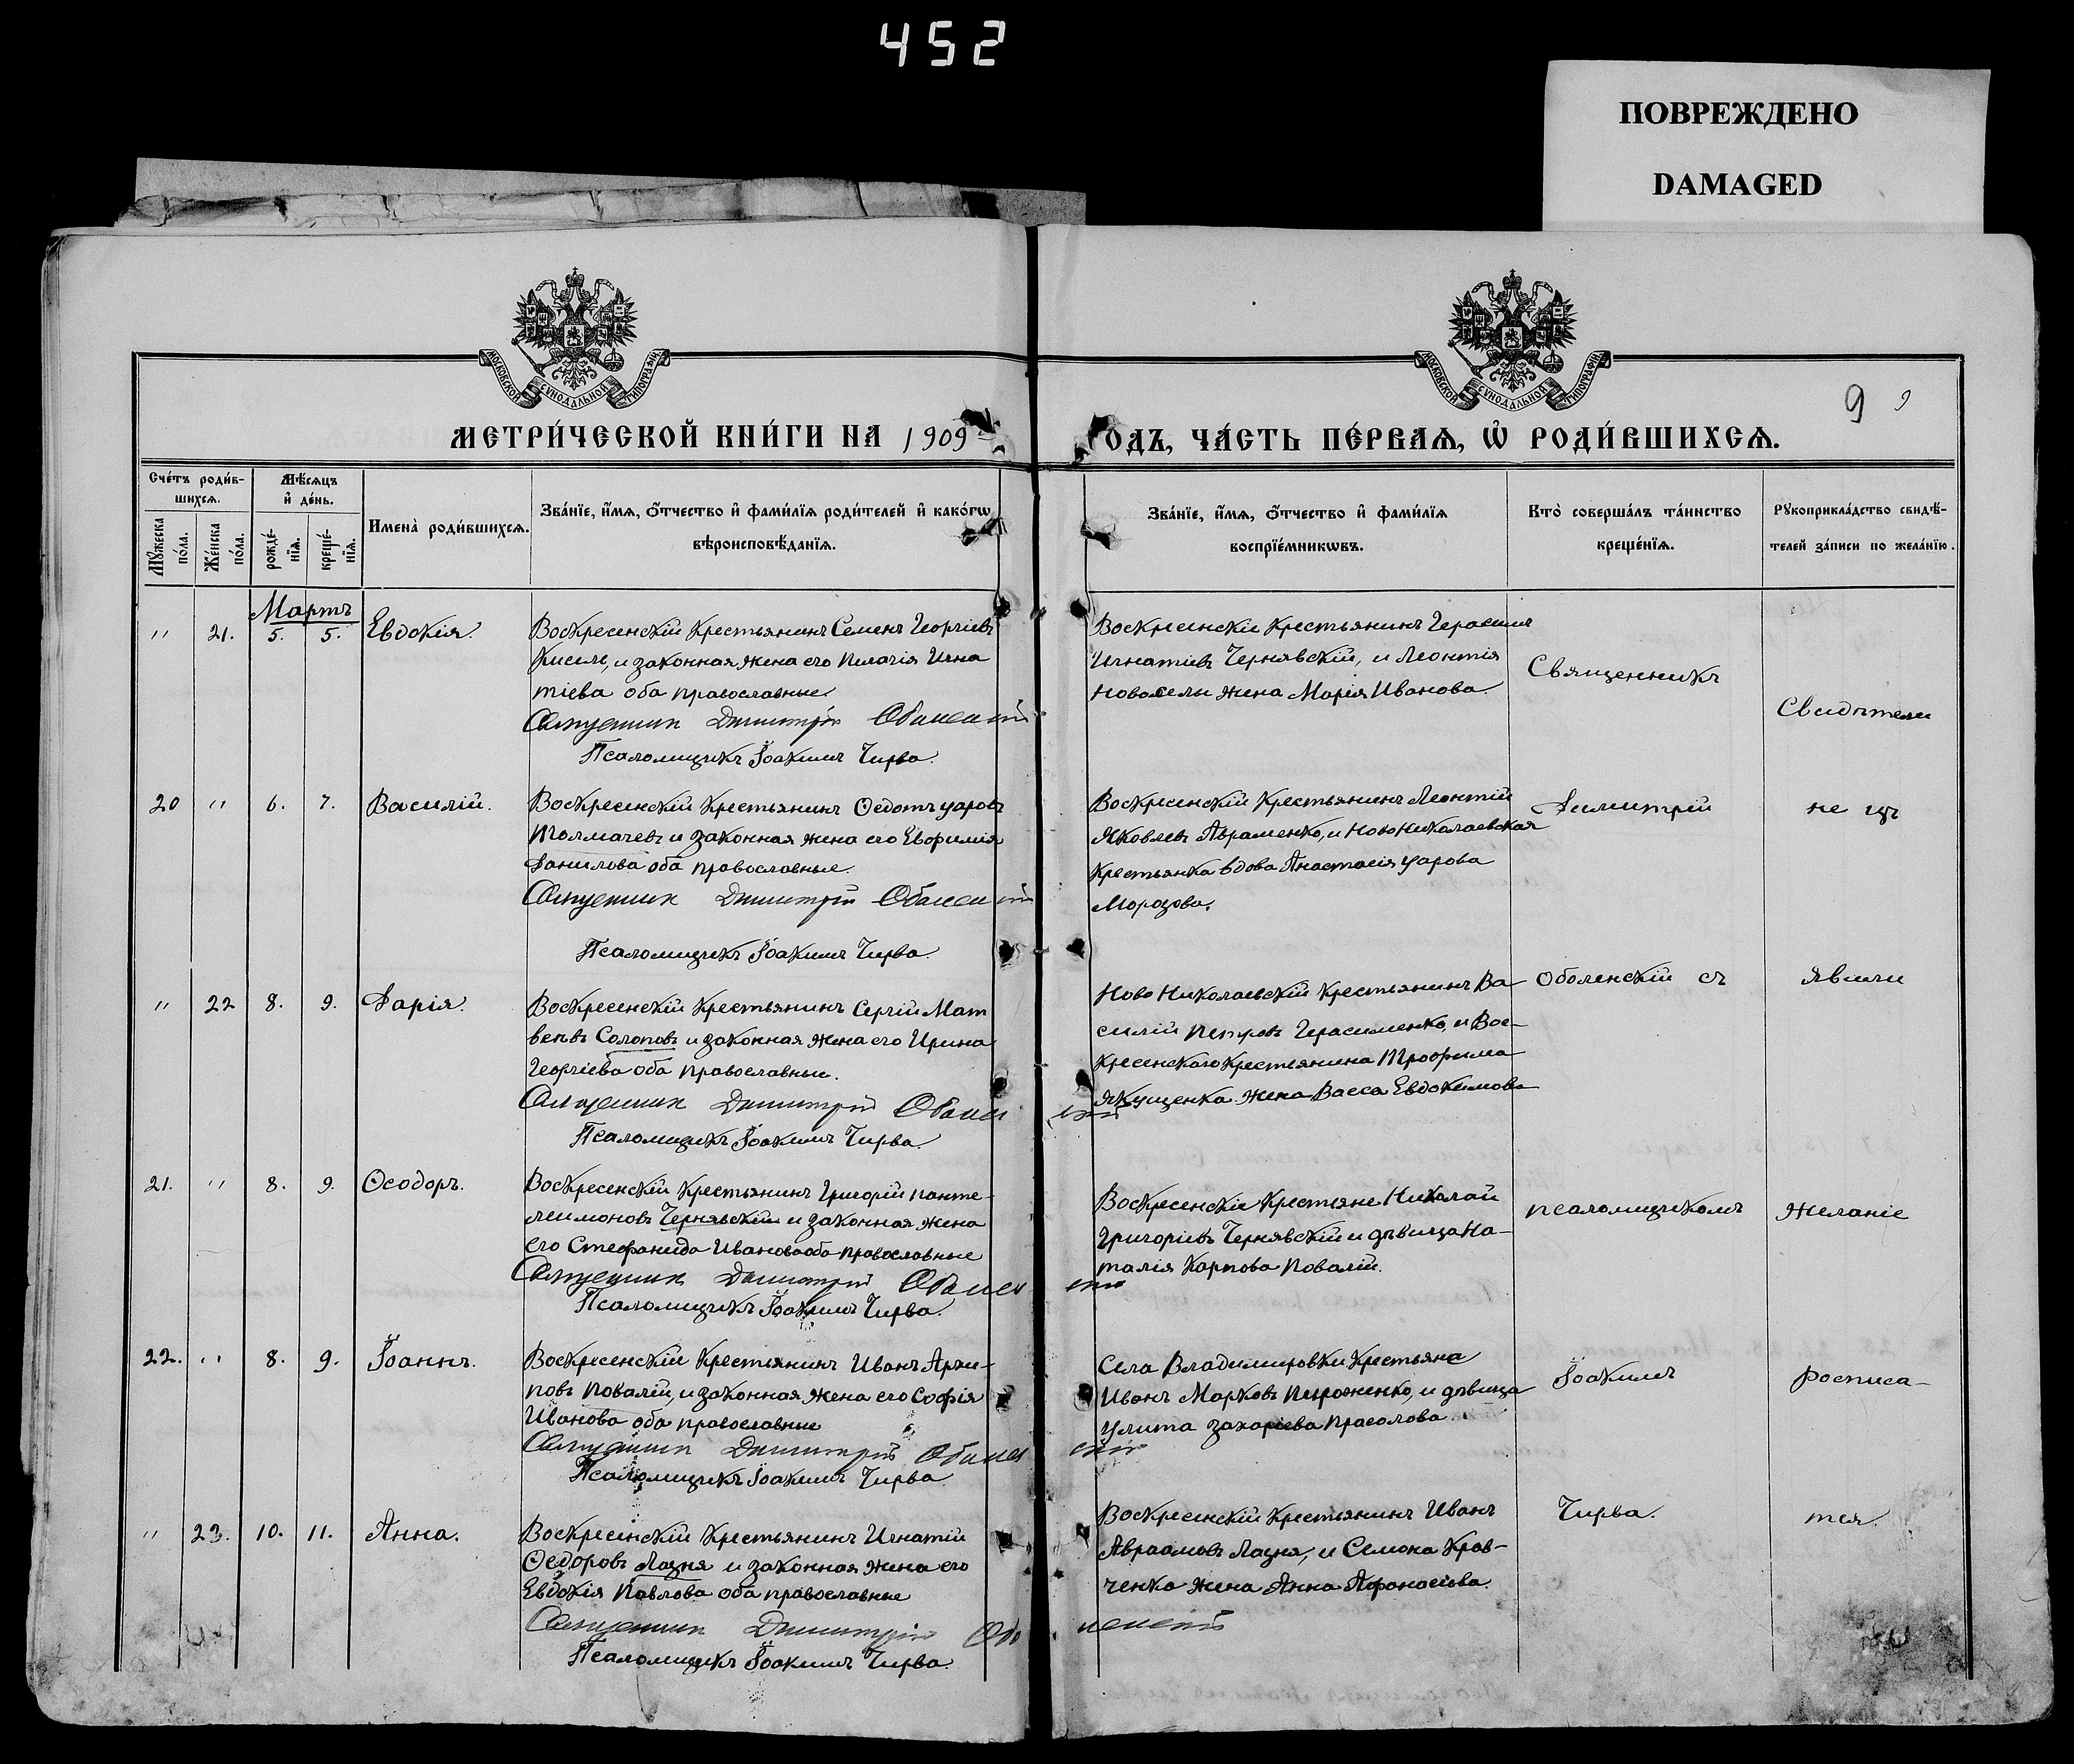 452
ПОВРЕЖДЕНО
DAMAGED
МОСКОВСКОЙ СѴНОДАЛЬНОЙ ТИПОГРАФІИ
МОСКОВСКОЙ СѴНОДАЛЬНОЙ ТИПОГРАФІИ
9 9
МЕТРИ́ЧЕСКОЙ КНИ́ГИ НА 1909
ОДЪ, ЧА́СТЬ ПЕ́РВАѦ, Ѡ҆ РОДИ́ВШИХСѦ.
Сче́тъ роди́в-
шихсѧ.
Мꙋжеска по́ла.
Же́нска по́ла.
Мѣ́сѧцъ
и҆ де́нь.
рожде́-нїѧ.
креще́-нїѧ.
Имена̀ роди́вшихсѧ.
Зва́нїе, и҆́мѧ, ѻ҆́тчество и҆ фами́лїѧ роди́телей и҆ како́гѡ
вѣроисповѣ́данїѧ.
Зва́нїе, и҆́мѧ, ѻ҆́тчество и҆ фами́лїѧ
воспрїе́мникѡвъ.
Кто̀ соверша́лъ та́инство
креще́нїѧ.
Рꙋкоприкла́дство свидѣ́-
телей за́писи по жела́нїю.
Мартъ
" 21. 5. 5. Евдокія.
Воскресенскій крестьянинъ Семенъ Георгіевъ
Кисель, и законная жена его Пелагія Игна
тіева оба православные.
Священник Димитрій Оболенскій
Псаломщикъ Іоакимъ Чирва.
Воскресенскіе крестьянинъ Герасимъ
Игнатіевъ Чернявскій, и Леонтія
Новоселы жена Марія Иванова.
20 " 6. 7. Василій.
Воскресенскій крестьянинъ Ѳедотъ Уаровъ
Толмачевъ и законная жена его Евфимія
Данилова оба православные.
Священник Димитрій Оболенскій
Псаломщикъ Іоакимъ Чирва.
Воскресенскій крестьянинъ Леонтій
Яковлевъ Авраменко, и Ново Николаевская
крестьянка вдова Анастасія Уарова
Морозова.
" 22 8. 9. Дарія.
Воскресенскій крестьянинъ Сергій Мат
веевъ Солоповъ и законная жена его Ирина
Георгіева оба православные.
Священник Димитрій Оболенскій
Псаломщикъ Іоакимъ Чирва.
Ново Николаевскій крестьянинъ Ва-
силій Петровъ Герасименко, и Вос-
кресенскаго крестьянина Трофима
Якущенка жена Васса Евдокимова
21. " 8. 9. Ѳеодоръ.
Воскресенскій крестьянинъ Григорій Панте-
леимоновъ Чернявскій и законная жена
его Стефанида Иванова оба православные
Священник Димитрій Оболенскій
Псаломщикъ Іоакимъ Чирва.
Воскресенскіе крестьяне Николай
Григоріевъ Чернявскій и дѣвица На-
талія Карпова Повалій.
22. " 8. 9. Іоаннъ.
Воскресенскій крестьянинъ Иванъ Архи-
повъ Повалій, и законная жена его Софія
Иванова оба православные
Священник Димитрій Оболенскій
Псаломщикъ Іоакимъ Чирва.
Села Владимировки крестьяне
Иванъ Марковъ Пироженко, и дѣвица
Улита Захаріева Прасолова.
" 23. 10. 11. Анна.
Воскресенскій крестьянинъ Игнатій
Ѳедоровъ Лазня и законная жена его
Евдокія Павлова оба православные
Священник Димитрій Оболенскій
Псаломщикъ Іоакимъ Чирва.
Воскресенскій крестьянинъ Иванъ
Авраамовъ Лазня, и Семена Крав-
ченка жена Анна Афанасіева.
Священникъ
Димитрій
Оболенскій съ
псаломщикомъ
Іоакимъ
Чирва.
Свидѣтели
не изъ
явили
желаніе
росписа-
тся.